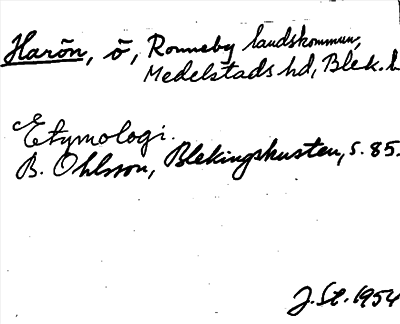 Harön, ö, Ronneby landskommun,
Medelstads hd, Blek. l
Etymologi.
B. Ohlsson, Blekingskusten, s. 85.
J. St. 1954